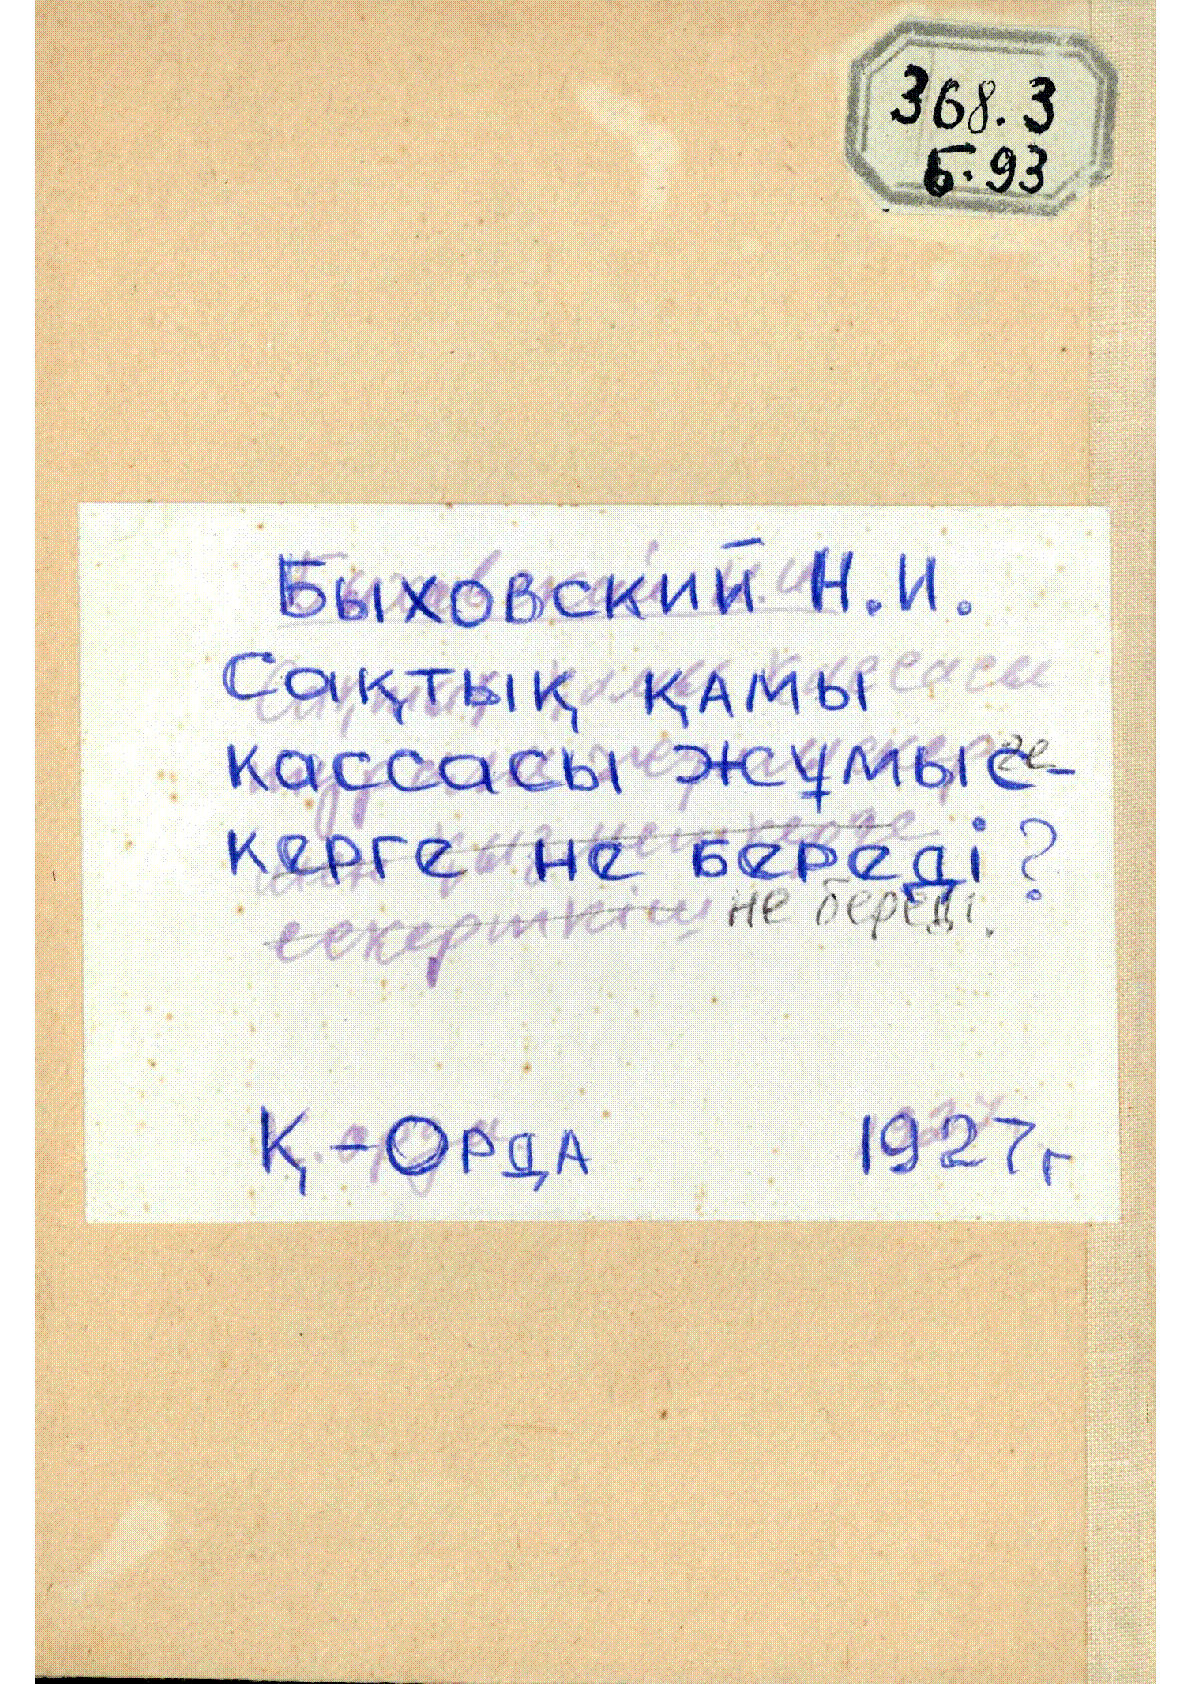 368.3
Б.93
Быховский Н.И.
Сақтық қамы
кассасы жұмыс-
керге не береді?
не береді.
Қ-Орда 1927г